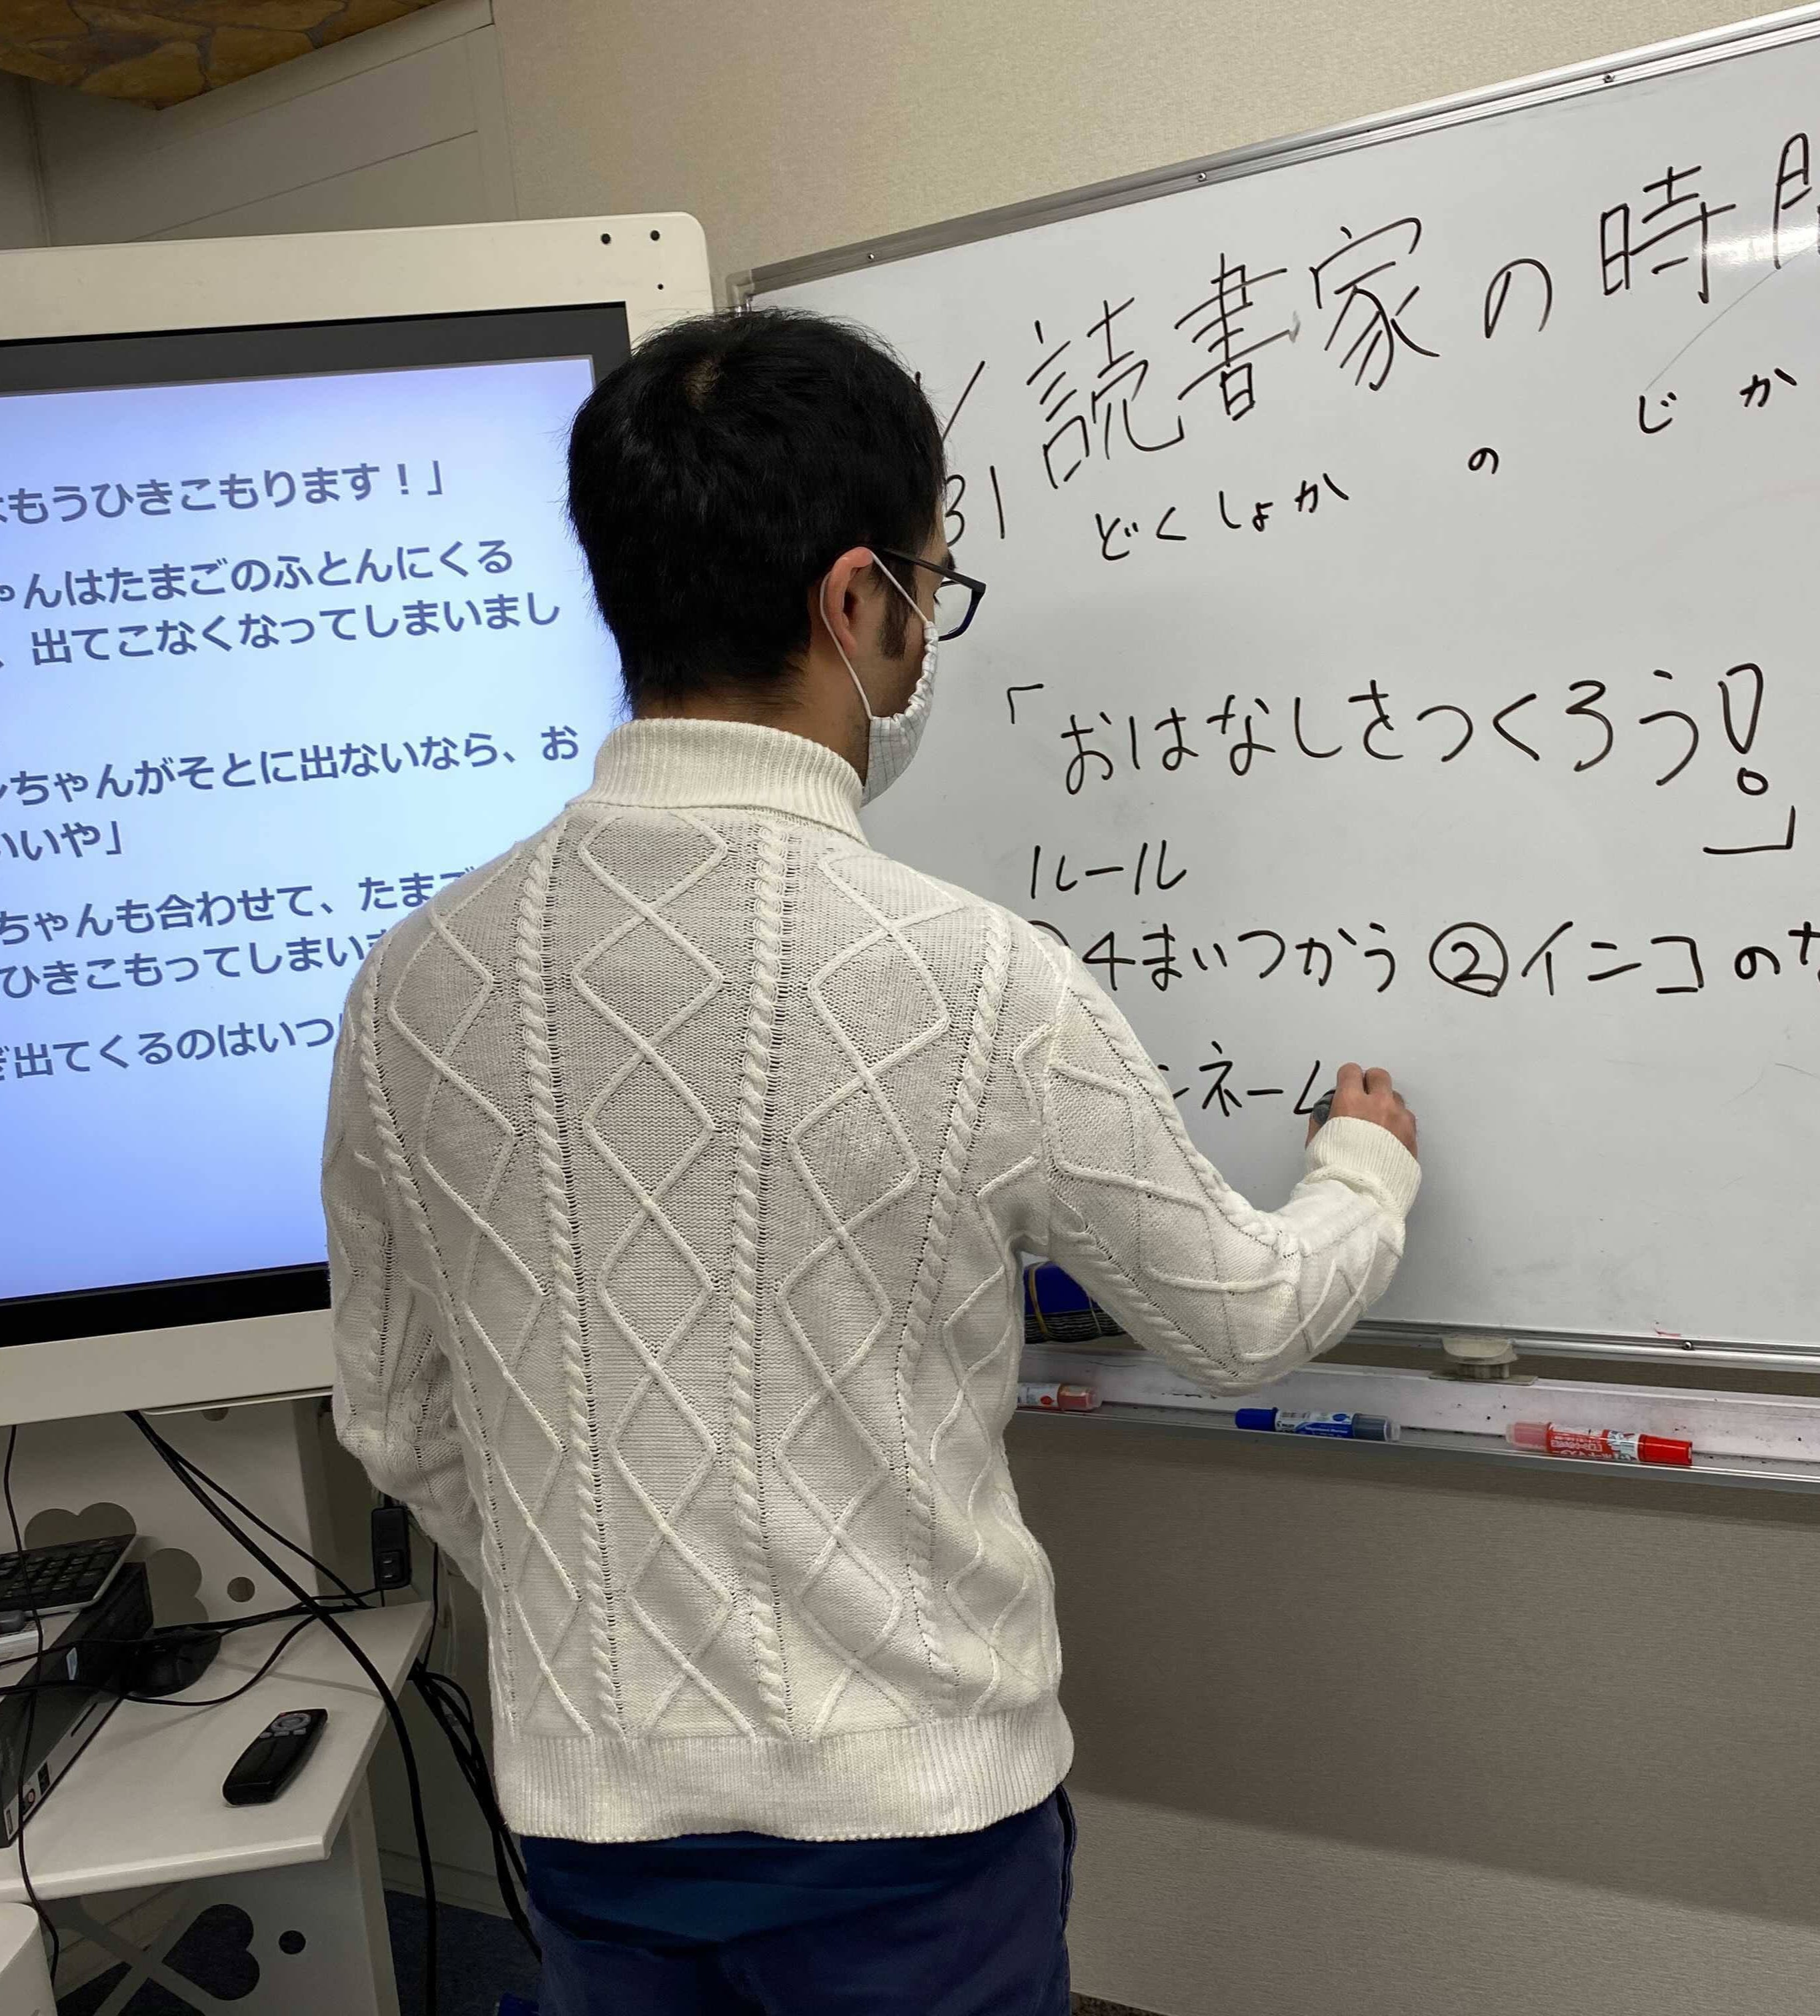 もうひきこもります！」
んはたまごのふとんにくる
、出てこなくなってしまいまし
ちゃんがそとに出ないなら、お
いいや」
ちゃんも合わせて、たまご
ひきこもってしまいま
出てくるのはいつ
31 読書家の時
どくしょか の じか
「おはなしをつくろう！」
ルール
4まいつかう ②インコの
ネーム